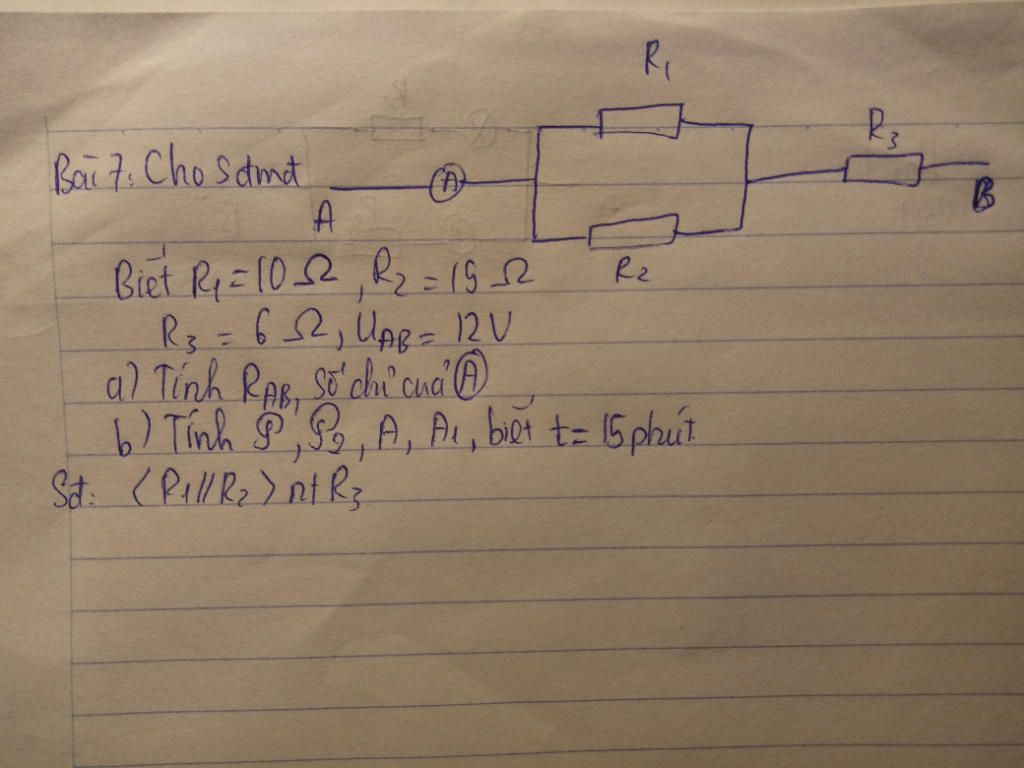 R₁
Bài 7: Cho Sđmđ
A
R₃
A
B
R₂
Biết R₁ = 10 Ω, R₂ = 15 Ω
R₃ = 6 Ω, UAB = 12V
a) Tính RAB, số chỉ của Ⓐ
b) Tính P, P₂, A, A₁, biết t = 15 phút.
Sđ: (R₁//R₂) nt R₃